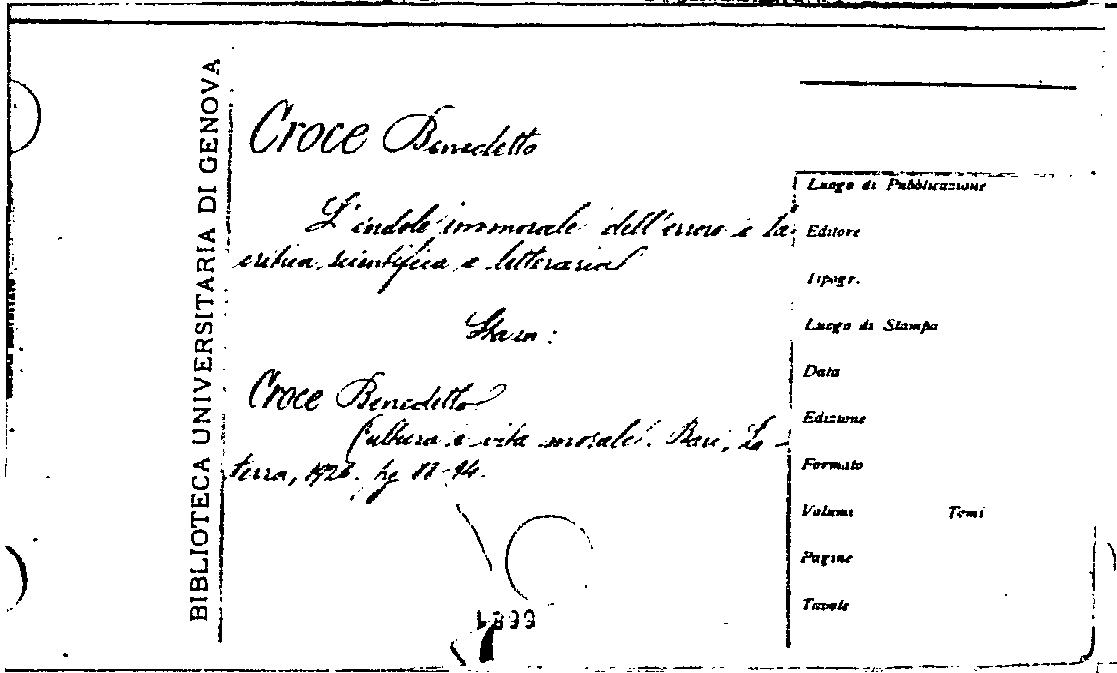 BIBLIOTECA UNIVERSITARIA DI GENOVA
Croce Benedetto
L'indole immorale dell'errore e la
critica scientifica e letteraria
Croce Benedetto
Cultura e vita morale. Bari, La-
terza, pg
Luogo di Pubblicazione
Editore
Tipogr.
Luogo di Stampa
Data
Edizione
Formato
Volumi Tomi
Pagine
Tavole